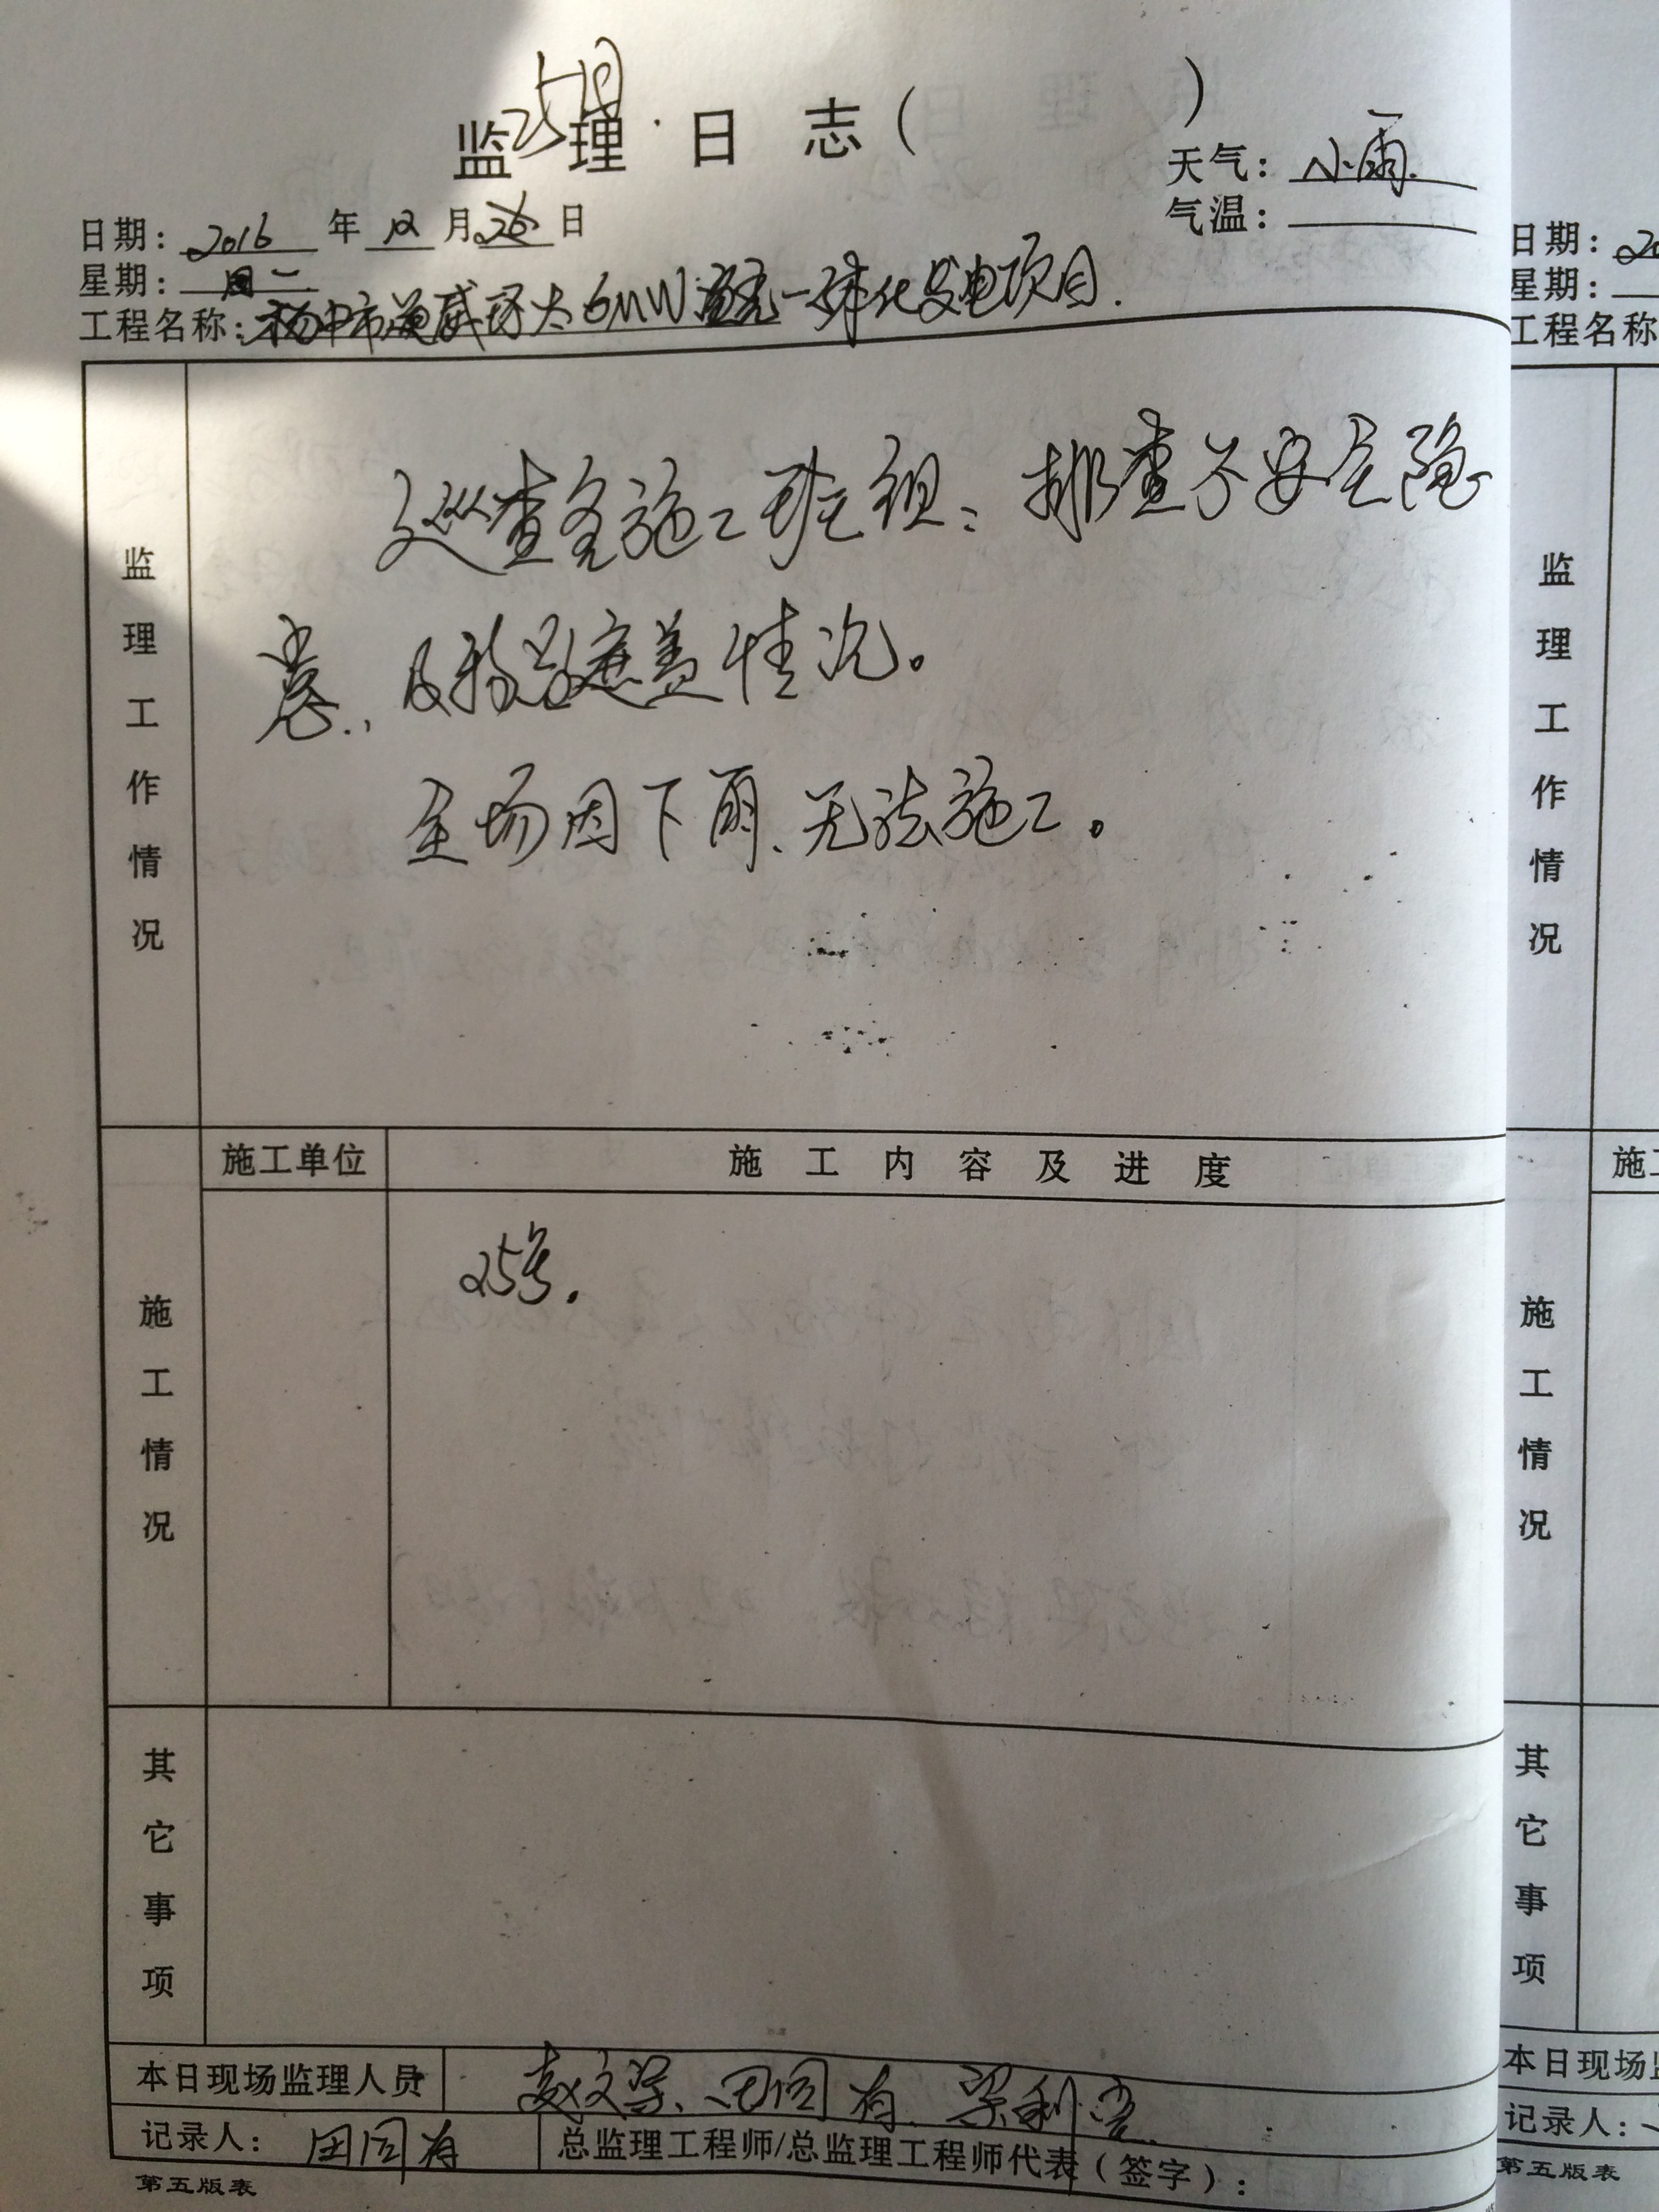 25日
监理日志（ ）
天气：小雨
日期：2016年12月26日
气温：
星期：周二
工程名称：扬中市通威 6MW渔光一体化发电项目.
监理工作情况
巡查各施工班组：排查不安全隐
患., 及 遮盖情况。
全场因下雨、无法施工。
施工情况
施工单位
施工内容及进度
25号.
其它事项
本日现场监理人员
田同有
记录人：田同有
总监理工程师/总监理工程师代表（签字）：
第五版表
日期：20
星期：
工程名称
监理工作情况
施工
施工情况
其它事项
本日现场监
记录人：
第五版表